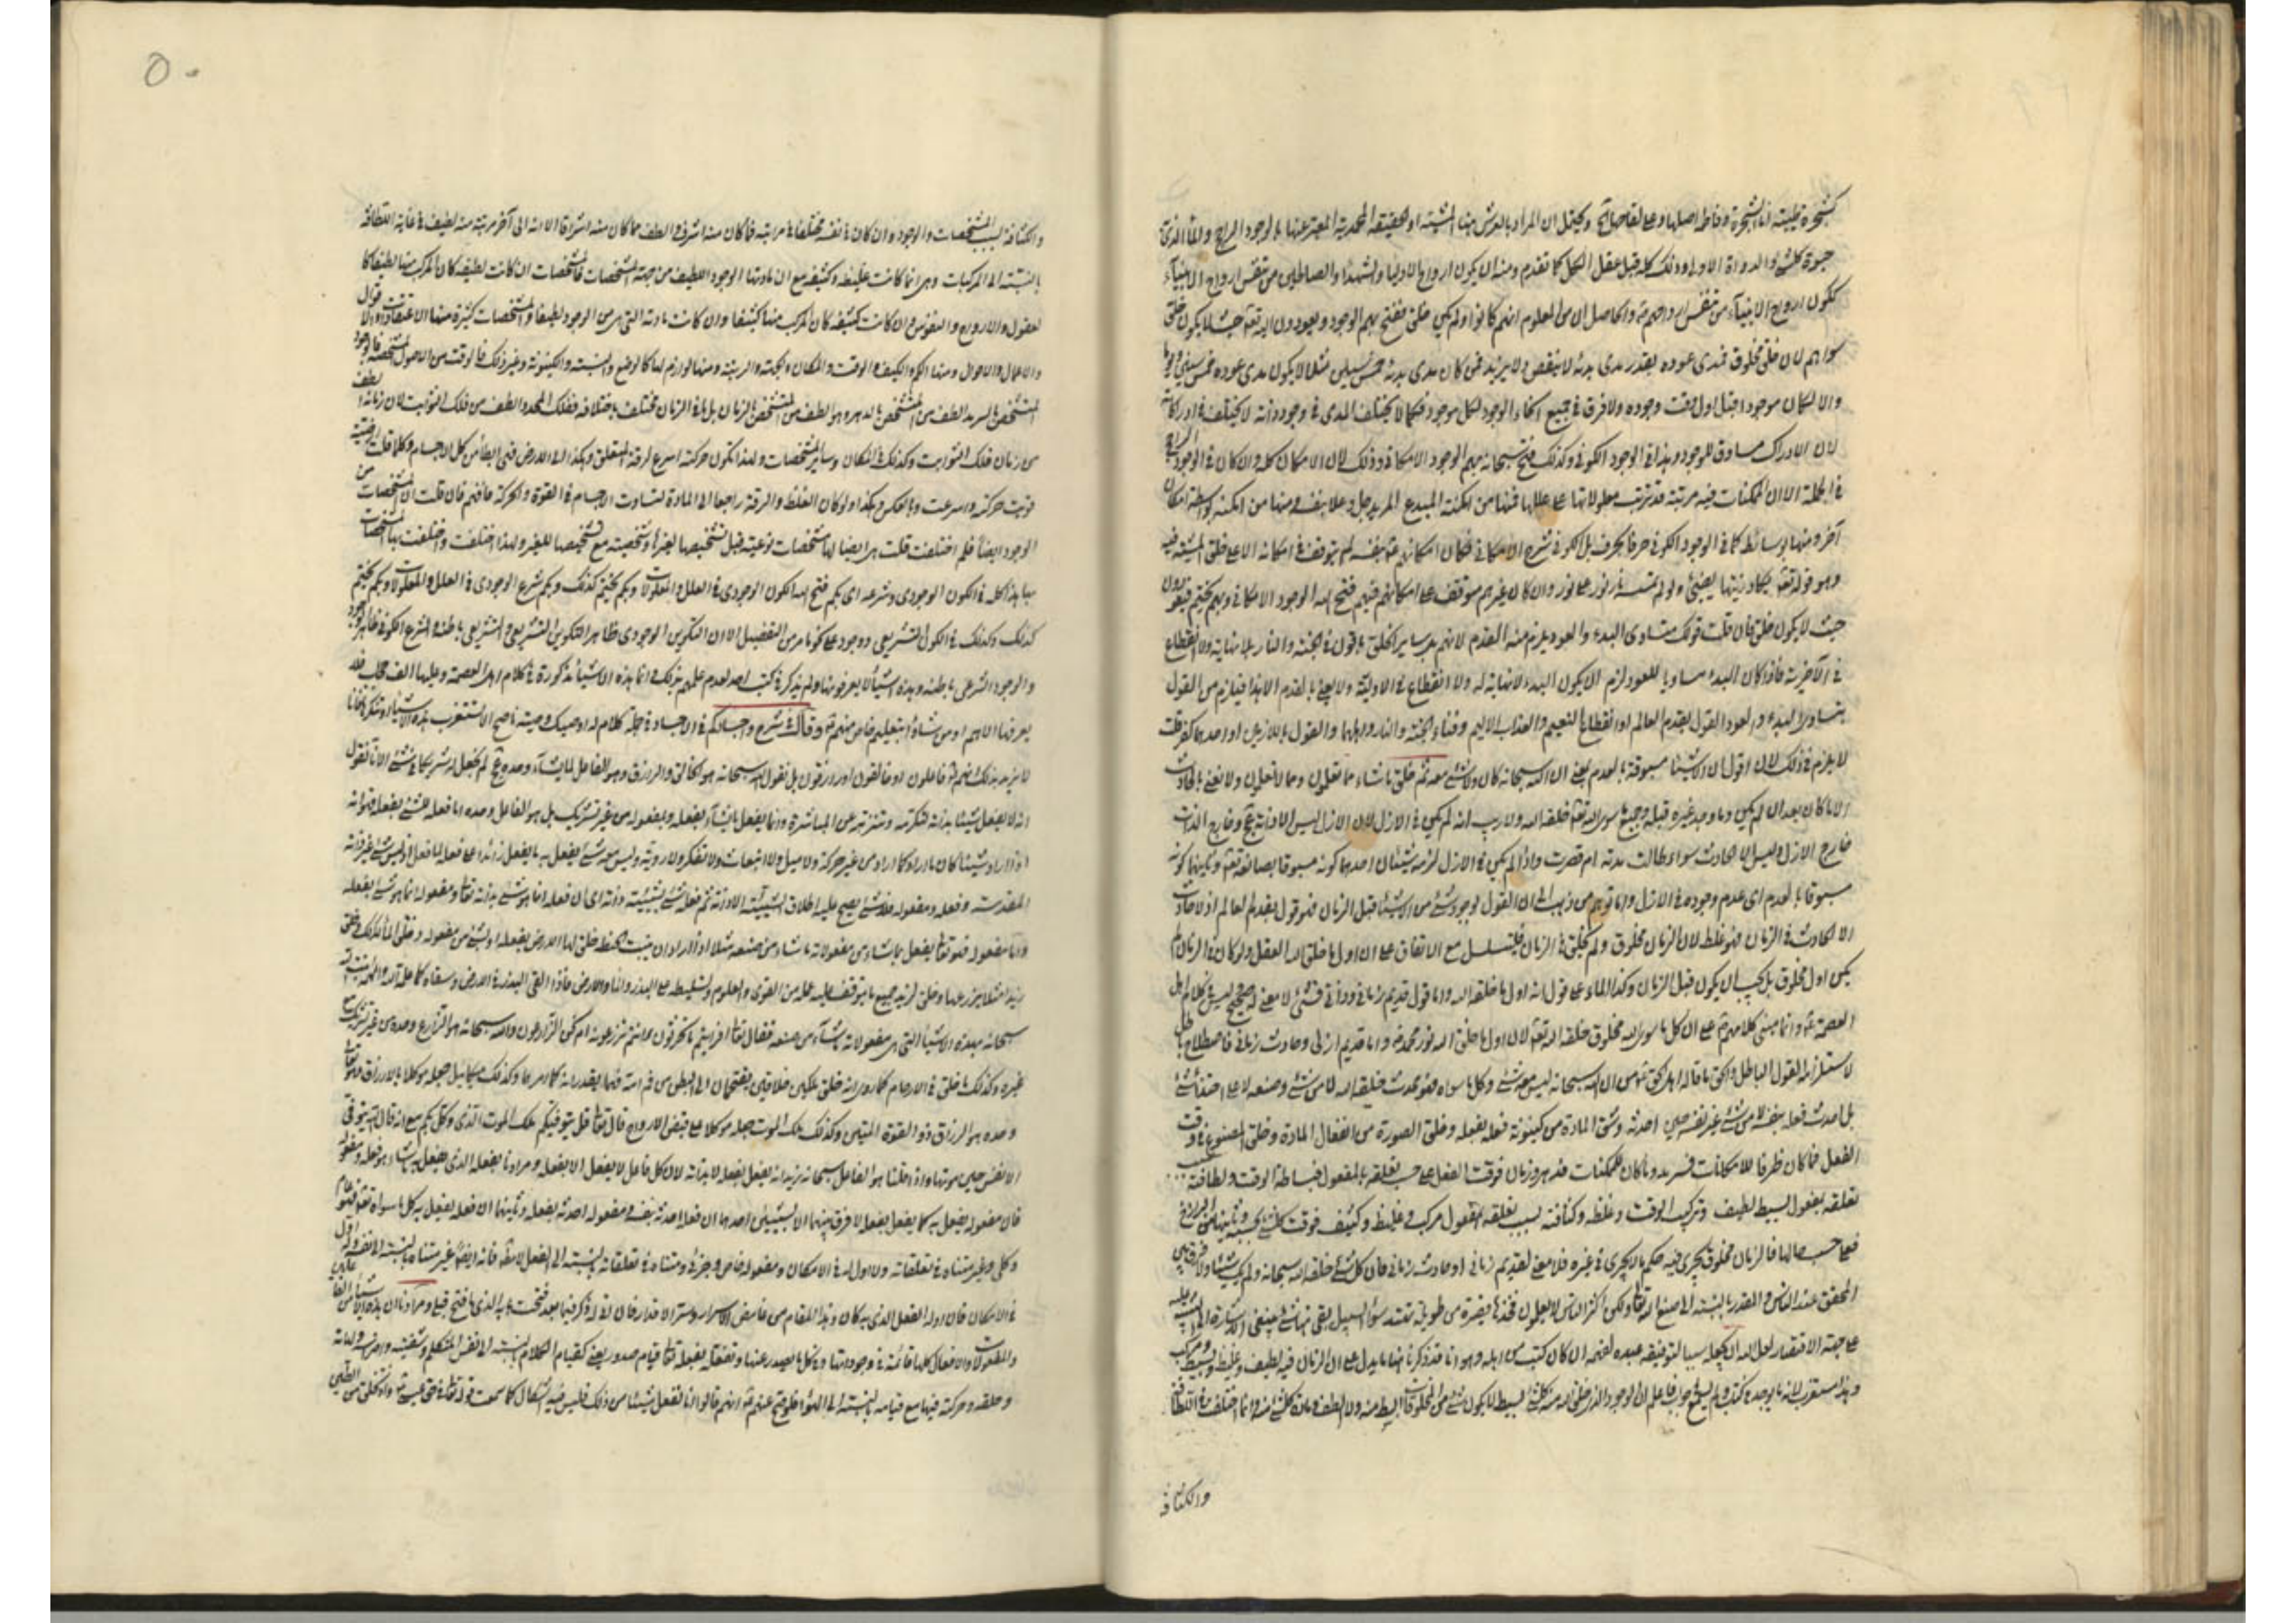 كشجرة طيبة انا الشجرة وفاطمة اصلها وعلي لقاحها ويحتمل ان المراد بالعرش هنا المشية او الحقيقة المحمدية المعبر عنها بالوجود الراجح والماء الذي
حيوة كل شئ والدواة الاولى وذلك كله قبل عقل الكل كما تقدم ومنه ان يكون ارواح الاوليا والشهداء والصالحين من تنفس ارواح الانبياء
لكون ارواح الانبياء من تنفس ارواحهم والحاصل ان من المعلوم انهم كانوا ولم يكن خلق يفتح بهم الوجود ويعودون اليه تعالى حيث لا يكون خلق
سواهم لان خلق مخلوق فمدى عوده بقدر مدى بدئه لا ينقص ولا يزيد فمن كان مدى بدئه خمس سنين مثلا لا يكون مدى عوده خمس سنين
والا لكان موجودا قبل اول وقت وجوده ولا فرق في جميع انحاء الوجود لكل موجود فكما لا يختلف المدى في وجود ذاته لا يختلف في ادراكاته
لان الادراك مساوق للوجود وهذا في الوجود الكوني وكذلك فتح سبحانه بهم الوجود الامكاني وذلك لان الامكان كله وان كان في الوجود الراجح
في الجملة الا ان الممكنات فيه مرتبة قد ترتبت معلولاتها على عللها فمنها من امكنه المبدع المريد جل وعلا بنفسه ومنها من امكنه بواسطة امكان
آخر ومنها بوسائط كما في الوجود الكوني حرفا بحرف بل الكوني شرح الامكاني فكان امكانهم بنفسه لم يتوقف في امكانه الا على خلق المشية فيه
وهو قوله تعالى يكاد زيتها يضيئ ولو لم تمسسه نار نور على نور وان كان غيرهم متوقف على امكانهم فبهم فتح الله الوجود الامكاني وبهم يختم
حيث لا يكون خلق فان قلت قولك متساوى البدء والعود يلزم منه القدم لانهم مع ساير الخلق باقون في الجنة والنار بلا نهاية ولا انقطاع
في الآخرية فاذا كان البدء مساويا للعود لزم ان يكون البدء لا نهاية له ولا انقطاع في الاولية ولا يعني بالقدم الا هذا فيلزم من القول
بتساوى البدء والعود القول بقدم العالم او انقطاع النعيم والعذاب الاليم وفناء الجنة والنار واهلهما والقول باللازمين او احدهما كفر قلت
لا يلزم في ذلك لانى اقول ان الاشياء مسبوقة بالعدم يعني ان الله سبحانه كان ولا شئ معه ثم خلق ما شاء مما تعلمون ومما لا تعلمون ولا نعني بالحادث
الا ما كان بعد ان لم يكن وما وجد غيره قبله وجميع ما سوى الله تعالى خلقه الله ولا ريب انه لم يكن في الازل لان الازل ليس الا ذاته وخارج الذات
خارج الازل وليس الا الحادث سواء طالت مدته ام قصرت واذا لم يكن في الازل لزمه شيئان احدهما كونه مسبوقا بصانعه تعالى وثانيهما كونه
مسبوقا بالعدم اى عدم وجوده في الازل واما توهم من ذهب الى ان القول بوجود شئ من الاشياء قبل الزمان فهو قول بقدم العالم اذ لا حادث
الا الحادث في الزمان فهو غلط لان الزمان مخلوق ولم يخلق في الزمان فيتسلسل مع الاتفاق على ان اول ما خلق الله العقل ولو كان في الزمان لم
يكن اول مخلوق بل يجب ان يكون قبل الزمان وكذا الماء على قول انه اول ما خلقه الله واما قول قديم زماني وذاتي فشئ لا معنى له صحيح وليس في كلام اهل
العصمة وانما مبنى كلامهم على ان كل ما سوى الله مخلوق خلقه الله تعالى لان اول ما خلق الله نور محمد واما قديم ازلي وحادث زماني فاصطلاح باطل
لاستلزامه القول الباطل والحق ما قاله اهل الحق من ان الله سبحانه ليس معه شئ وكل ما سواه فهو محدث خلقه الله لا من شئ وصنعه لا على احتذاء شئ
بل احدث فعله بنفسه لا من شئ غير نفسه حين احدثه وشق المادة من كينونة فعله بفعله وخلق الصورة من انفعال المادة وخلق المصنوع في وقت
الفعل فما كان ظرفا للامكانات فسرمد وما كان للممكنات فدهر وزمان فوقت الفعل على حسب تعلقه بالمفعول فبساطة الوقت ولطافته بسبب
تعلقه بمفعول البسيط لطيف وتركيب الوقت وغلظه وكثافته بسبب تعلقه بمفعول مركب وغليظ وكثيف فوقت كل شئ بحسبه
فعلى حسب حالها فالزمان مخلوق يجرى فيه حكم ما يجرى في غيره فلا معنى لقديم زماني او حادث زماني فان كل شئ خلقه الله سبحانه ولم يك شيئا
المحقق عند الناس والمقدر بالنسبة الى صنع الله تعالى ولكن اكثر الناس لا يعلمون فخذها قصيرة من طويلة تهتد سواء السبيل بقى شئ ينبغي الاشارة اليه
على جهة الاقتصار لعل الله ان يجعله سببا لتوفيقه عبده لفهمه ان كان كتب من اهله وهو انا قد ذكرنا ما يدل على ان الزمان فيه لطيف وغليظ وبسيط ومركب
وهذا مستغرب لانه ما يوجد في كتب ولم يسمع من جواب فاعلم ان الوجود الذي خلق الله منه كل شئ البسيط لا يكون شئ من المخلوقات ابسط منه ولا الطف ومادة كل شئ منه وانما اختلف في اللطافة
والكثافة
٥٠
والكثافة بسبب المشخصات والوجود وان كان في نفسه مختلفا في مراتبه فما كان منه اشرق والطف مما كان منه اشراقا الا انه الى آخر مرتبة منه لطيف في غاية اللطافة
بالنسبة الى المركبات وهي انما كانت غليظة وكثيفة مع ان مادتها الوجود اللطيف من جهة المشخصات فالمشخصات ان كانت لطيفة كان المركب منها لطيفا كا
لعقول والارواح والنفوس وان كانت كثيفة كان المركب منها كثيفا وان كانت مادته التي هي من الوجود لطيفا والمشخصات كثيرة منها الاعتقادات والاقوال
والاعمال والاحوال ومنها الكم والكيف والوقت والمكان والجهة والرتبة ومنها لوازم لها كالوضع والنسبة والكينونة وغير ذلك فالوقت من الاصول المشخصة فالوجود
المشخص بالسرمد الطف من المشخص بالدهر وهو الطف من المشخص بالزمان بل ما في الزمان مختلف باختلافه ففلك المحدد الطف من فلك الثوابت لان زمانه الطف
من زمان فلك الثوابت وكذلك في المكان وساير المشخصات ولهذا تكون حركته اسرع لرقة المتعلق وهكذا الى الارض فهي ابطأ من كل الاجسام وكلما قلت ارضيته
قويت حركته واسرعت وبالعكس وهكذا ولو كان الغلظ والرقة راجعا الى المادة لتساوت الاجسام في القوة والحركة فافهم فان قلت ان المشخصات من
الوجود ايضا فلم اختلفت قلت هي ايضا لها مشخصات نوعية قبل تشخيصها لغيرها وشخصية مع تشخيصها للغير ولهذا اختلفت واختلفت بها المشخصات
بها هذا كله في الكون الوجودى وشرعه اى بكم فتح الله الكون الوجودى في العلل والمعلولات وبكم يختم كذلك وبكم شرع الوجودى في العلل والمعلولات وبكم يختم
كذلك وكذلك في الكون التشريعي ووجوده على نحو ما مر من التفصيل الا ان التكوين الوجودى ظاهر التكوين التشريعي والتشريعي باطنه والشرع الكوني ظاهر الوجود
والوجود الشرعي باطنه وهذه اشياء لا يعرفونها ولم يذكر في كتب احد لعدم علمهم بذلك وانما هذه الاشياء مذكورة في كلام اهل العصمة وعليها الف حجاب فلا
يعرفها الا هم او من شاؤا بتعليمهم خاص منهم وقال الشرح واجسادكم في الاجساد في جملة كلام له اوصيك وصية ناصح ان لا تستغرب هذه الاشياء وتنكرها فانا
لا نريد بذلك انهم فاعلون او خالقون او رازقون بل نقول الله سبحانه هو الخالق والرازق وهو الفاعل لما يشاء وحده لم نجعل له شريكا في شئ الا انا نقول
انه لا يفعل شيئا بذاته لتكرمه وتنزهه عن المباشرة وانما يفعل ما يشاء بفعله وبمفعوله من غير تشريك بل هو الفاعل وحده اما فعله للشئ بفعله فهو انه
اذا اراد شيئا كان ما اراد كما اراد من غير حركة ولا ميل ولا انبعاث ولا تفكر ولا روية وليس معه شئ يفعل به ما يفعل زائدا على فعله لما فعل اذ ليس شئ غير ذاته
المقدسة وفعله ومفعوله فلا شئ يصح عليه اطلاق الشيئية الا ذاته ثم فعله شئ بشيئية ذاته اى ان فعله انما هو شئ بذاته تعالى ومفعوله انما هو شئ بفعله
واما مفعوله فهو تعالى يفعل بما شاء من مفعولاته ما شاء من صنعه مثلا اذا اراد ان ينبت الحنطة خلق لها الارض بفعله او بشئ من مفعوله وخلق الماء كذلك وخلق
زيدا مثلا يزرعها وخلق لزيد جميع ما يتوقف عليه عمله من القوى والعلوم والتسليط على البذر والماء والارض فاذا القى البذر في الارض وسقاه كما علمه الله والهمه انبته
سبحانه بهذه الاشياء التي هي مفعولاته ما شاء من صنعه فقال تعالى افرأيتم ما تحرثون ءانتم تزرعونه ام نحن الزارعون والله سبحانه هو الزارع وحده من غير تشريك مع
غيره وكذلك ما خلق في الارحام كما روى انه خلق ملكين خلاقين يقتحمان الى البطن من فم امه فهما يقدرانه كما امر هما وكذلك ميكائيل جعله موكلا بالارزاق فهو تعالى
وحده هو الرزاق ذو القوة المتين وكذلك ملك الموت جعله موكلا على قبض الارواح قال تعالى قل يتوفيكم ملك الموت الذى وكل بكم مع انه قال الله يتوفى
الانفس حين موتها واذا قلنا هو الفاعل سبحانه نريد انه يفعل بفعله لا بذاته لان كل فاعل لا يفعل الا بفعله ومرادنا بفعله الذى يفعل به ما يشاء هو فعله ومفعوله
فان مفعوله يفعل به كما يفعل بفعله لا فرق بينهما الا بشيئين احدهما ان فعله احدثه بنفسه ومفعوله احدثه بفعله وثانيهما ان فعله يفعل به كل ما سواه تعالى فهو عام
وكلي وغير متناه في تعلقاته ولا اول له في الامكان ومفعوله خاص وجزئي ومتناه في تعلقاته بالنسبة الى الفعل لا مطلقا فانه ايضا غير متناه بالنسبة الى نفسه وله اول
في الامكان فان اوله الفعل الذي به كان وهذا المقام من غامض الاسرار وسر الاقدار فان
والمفعولات والافعال كلها قائمة في وجوداتها وفي كل ما يصدر عنها وتفعله بفعله تعالى قيام صدور يعني كقيام الكلام بالنسبة الى نفس المتكلم وشفتيه واضراسه ولهاته
وحلقه وحركته فيها مع قيامه بالنسبة الى الهواء فلو صح عنهم انهم قالوا انا نفعل شيئا من ذلك فليس فيه اشكال كما سمعت قوله تعالى في حق عيسى واذ تخلق من الطين